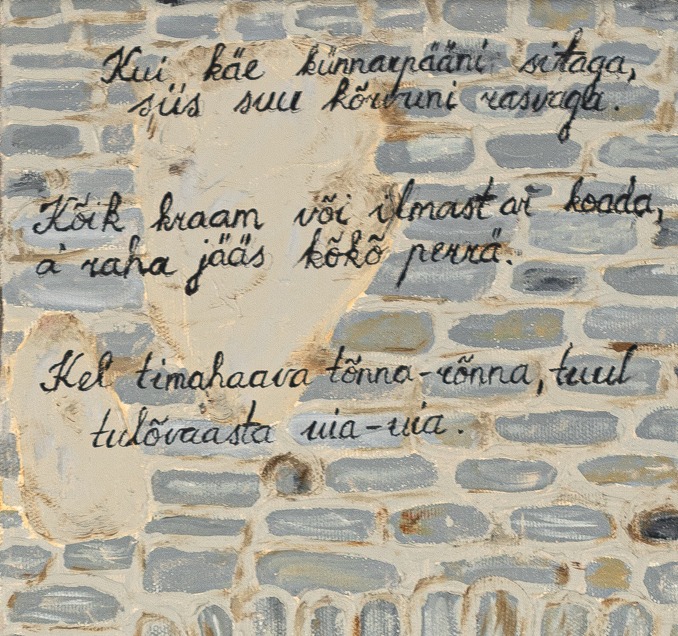 Kui käe künnarpääni sitaga,
siis suu kõrvuni rasvaga.
Kõik kraam või ilmast är koada,
à raha jääs kõkõ perrä.
Kel timahaava tõnna-rõnna, tuul
tulõvaasta uia-uia.